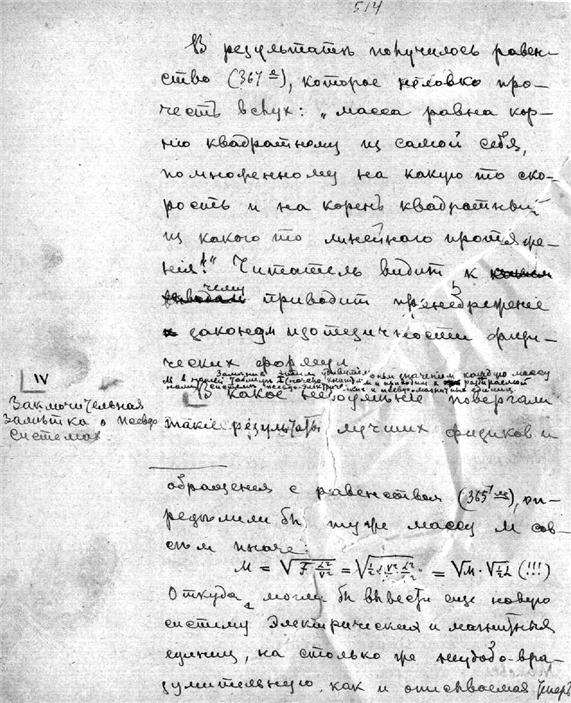 514
В результатѣ получилось равен-
ство (367 а), которое неловко про-
честь вслух: „масса равна кор-
ню квадратному из самой себя,
помноженному на какую то ско-
рость и на корень квадратный
из какого то линейного протяже-
ния!“ Читатель видит к
чему приводит пренебрежение
законом изотигичности физи-
ческих формул
Замѣнив этим
массу
В какое недоумѣние повергали
такие результаты лучших физиков и
IV
Заключительная
замѣтка о псевдо
системах.
обращения с равенством (365
), оп-
редѣлили бы ту же массу М сов-
сѣм иначе:
(!!!)
Откуда могли бы вывести еще новую
систему электрических и магнитных
единиц, на столько же неудобо-вра-
зумительную, как и описываемая